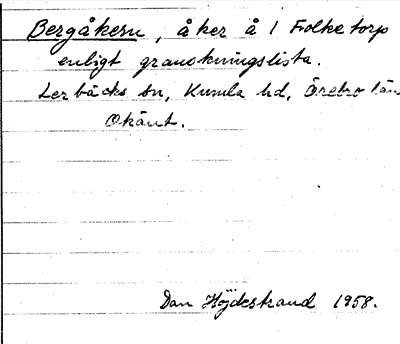 Bergåkern, åker å 1 Folketorp
enligt granskningslista.
Lerbäcks sn, Kumla hd, Örebro län
Okänt.
Dan Höjdestrand 1958.